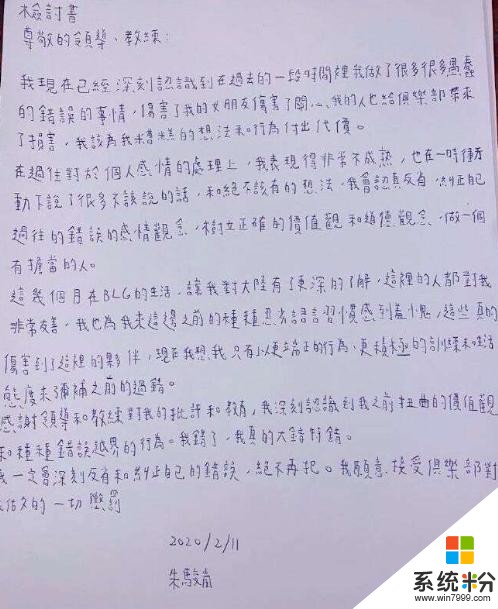 檢討書
尊敬的領導、教練：
我現在已經深刻認識到在過去的一段時間裡我做了很多很多愚蠢
的錯誤的事情，傷害了我的女朋友傷害了關心我的人也給俱樂部帶來
了損害，我該為我糟糕的想法和行為付出代價。
在過往對於個人感情的處理上，我表現得非常不成熟，也在一時衝
動下說了很多不該說的話，和絕不該有的想法，我會認真反省，糾正自己
過往的錯誤的感情觀念，樹立正確的價值觀和道德觀念，做一個
有擔當的人。
這幾個月在BLG的生活，讓我對大陸有了更深的了解，這裡的人都對我
非常友善，我也為我來這邊之前的種種惡劣語言習慣感到羞愧，這些真的
傷害到了這裡的夥伴，現在我想，我只有以更端正的行為，更積極的訓練和生活
態度來彌補之前的過錯。
感謝領導和教練對我的批評和教育，我深刻認識到我之前扭曲的價值觀
和種種錯誤越界的行為。我錯了，我真的大錯特錯。
我一定會深刻反省和糾正自己的錯誤，絕不再犯。我願意接受俱樂部對
的一切懲罰
2020/2/11
朱駿
系统粉
www.win7999.com